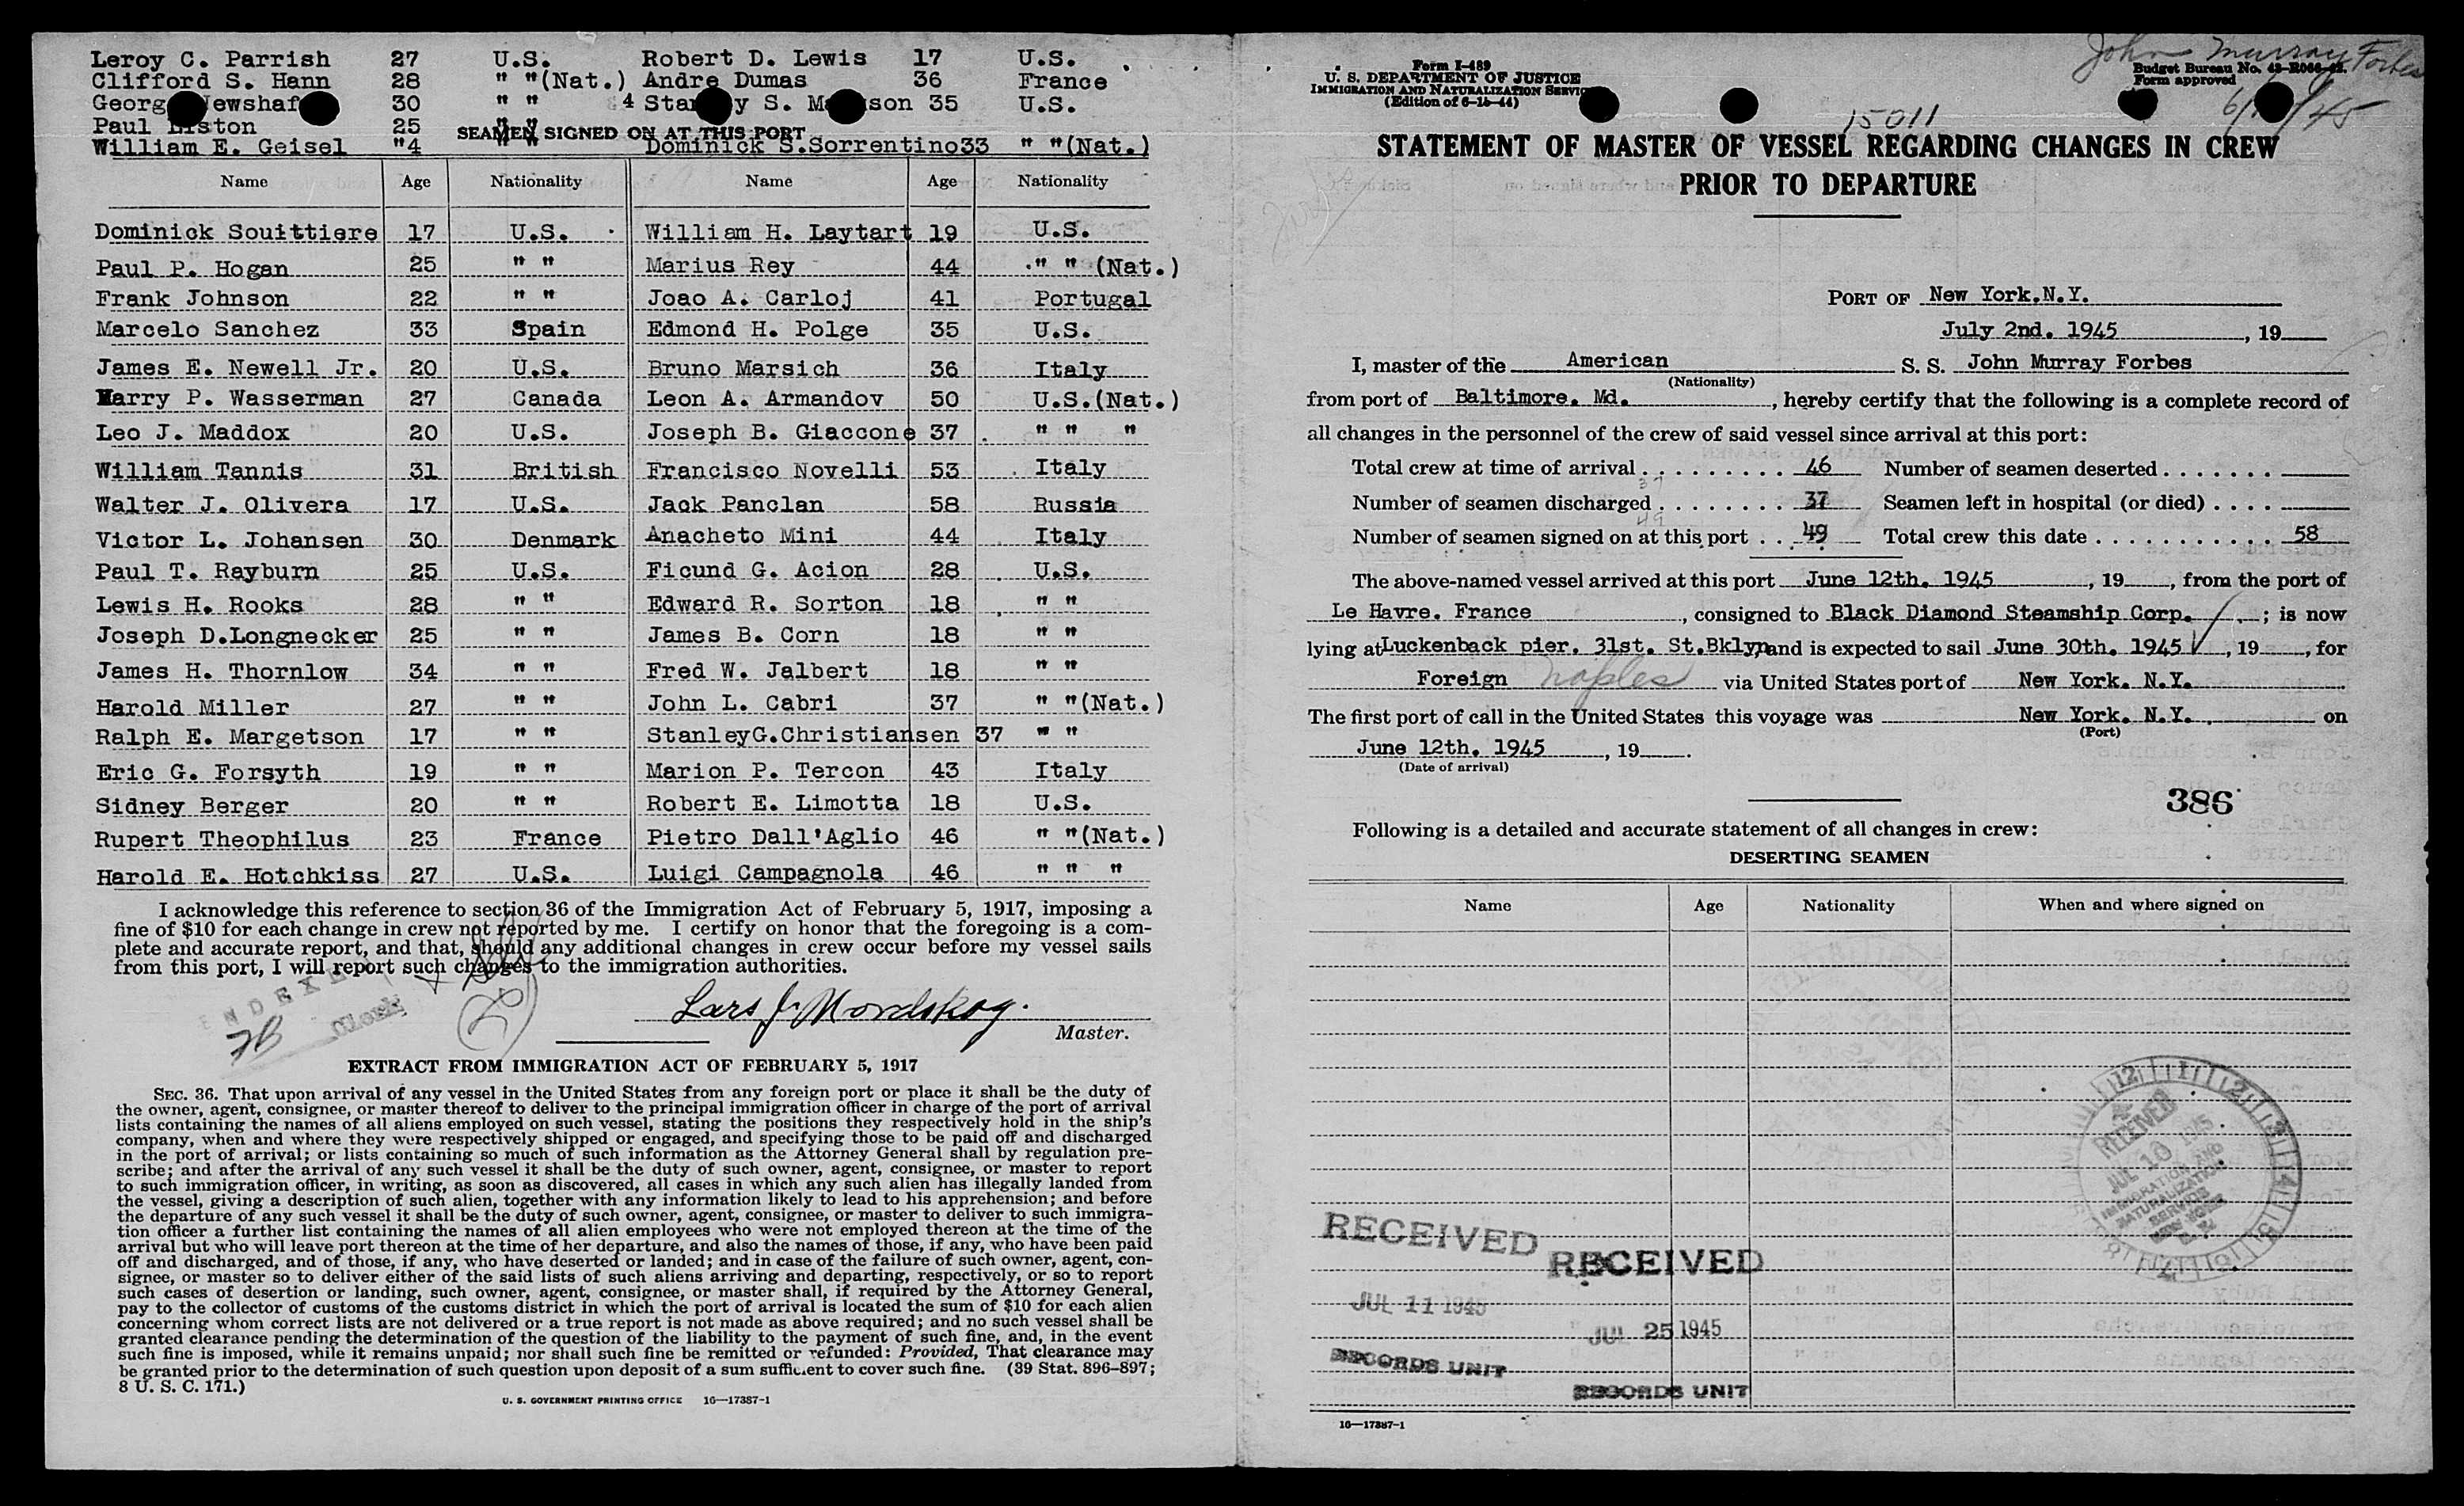 Leroy C. Parrish 27 U.S. Robert D. Lewis 17 U.S.
Clifford S. Hann 28 " "(Nat.) Andre Dumas 36 France
30 " " 4 S. 35 U.S.
Paul 25 " "
SEAMEN SIGNED ON AT THIS PORT
William E. Geisel "4 " " Dominick S.Sorrentino33 " "(Nat.)
Name Age Nationality Name Age Nationality
Dominick Souittiere 17 U.S. William H. Laytart 19 U.S.
Paul P. Hogan 25 " " Marius Rey 44 " " (Nat.)
Frank Johnson 22 " " Joao A. Carloj 41 Portugal
Marcelo Sanchez 33 Spain Edmond H. Polge 35 U.S.
James E. Newell Jr. 20 U.S. Bruno Marsich 36 Italy
Harry P. Wasserman 27 Canada Leon A. Armandov 50 U.S.(Nat.)
Leo J. Maddox 20 U.S. Joseph B. Giaccone 37 " " "
William Tannis 31 British Francisco Novelli 53 Italy
Walter J. Olivera 17 U.S. Jack Panclan 58 Russia
Victor L. Johansen 30 Denmark Anacheto Mini 44 Italy
Paul T. Rayburn 25 U.S. Ficund G. Acion 28 U.S.
Lewis H. Rooks 28 " " Edward R. Sorton 18 " "
Joseph D.Longnecker 25 " " James B. Corn 18 " "
James H. Thornlow 34 " " Fred W. Jalbert 18 " "
Harold Miller 27 " " John L. Cabri 37 " "(Nat.)
Ralph E. Margetson 17 " " StanleyG.Christiansen 37 " "
Eric G. Forsyth 19 " " Marion P. Tercon 43 Italy
Sidney Berger 20 " " Robert E. Limotta 18 U.S.
Rupert Theophilus 23 France Pietro Dall'Aglio 46 " "(Nat.)
Harold E. Hotchkiss 27 U.S. Luigi Campagnola 46 " " "
I acknowledge this reference to section 36 of the Immigration Act of February 5, 1917, imposing a
fine of $10 for each change in crew not reported by me. I certify on honor that the foregoing is a com-
plete and accurate report, and that, should any additional changes in crew occur before my vessel sails
from this port, I will report such changes to the immigration authorities.
INDEXED
Clerk
Lars J. Nordskog.
Master.
EXTRACT FROM IMMIGRATION ACT OF FEBRUARY 5, 1917
SEC. 36. That upon arrival of any vessel in the United States from any foreign port or place it shall be the duty of
the owner, agent, consignee, or master thereof to deliver to the principal immigration officer in charge of the port of arrival
lists containing the names of all aliens employed on such vessel, stating the positions they respectively hold in the ship's
company, when and where they were respectively shipped or engaged, and specifying those to be paid off and discharged
in the port of arrival; or lists containing so much of such information as the Attorney General shall by regulation pre-
scribe; and after the arrival of any such vessel it shall be the duty of such owner, agent, consignee, or master to report
to such immigration officer, in writing, as soon as discovered, all cases in which any such alien has illegally landed from
the vessel, giving a description of such alien, together with any information likely to lead to his apprehension; and before
the departure of any such vessel it shall be the duty of such owner, agent, consignee, or master to deliver to such immigra-
tion officer a further list containing the names of all alien employees who were not employed thereon at the time of the
arrival but who will leave port thereon at the time of her departure, and also the names of those, if any, who have been paid
off and discharged, and of those, if any, who have deserted or landed; and in case of the failure of such owner, agent, con-
signee, or master so to deliver either of the said lists of such aliens arriving and departing, respectively, or so to report
such cases of desertion or landing, such owner, agent, consignee, or master shall, if required by the Attorney General,
pay to the collector of customs of the customs district in which the port of arrival is located the sum of $10 for each alien
concerning whom correct lists are not delivered or a true report is not made as above required; and no such vessel shall be
granted clearance pending the determination of the question of the liability to the payment of such fine, and, in the event
such fine is imposed, while it remains unpaid; nor shall such fine be remitted or refunded: Provided, That clearance may
be granted prior to the determination of such question upon deposit of a sum sufficient to cover such fine. (39 Stat. 896-897;
8 U. S. C. 171.)
U. S. GOVERNMENT PRINTING OFFICE 16—17387-1
John Murray Forbes
Form I-489
U. S. DEPARTMENT OF JUSTICE
IMMIGRATION AND NATURALIZATION SERVICE
(Edition of 6-15-44)
Budget Bureau No.
Form approved
15011
STATEMENT OF MASTER OF VESSEL REGARDING CHANGES IN CREW
PRIOR TO DEPARTURE
PORT OF New York.N.Y.
July 2nd. 1945, 19
I, master of the American S. S. John Murray Forbes
(Nationality)
from port of Baltimore. Md., hereby certify that the following is a complete record of
all changes in the personnel of the crew of said vessel since arrival at this port:
Total crew at time of arrival 46 Number of seamen deserted
37
Number of seamen discharged 37 Seamen left in hospital (or died)
49
Number of seamen signed on at this port 49 Total crew this date 58
The above-named vessel arrived at this port June 12th. 1945, 19, from the port of
Le Havre. France, consigned to Black Diamond Steamship Corp.; is now
lying at Luckenback pier. 31st. St.Bklyn and is expected to sail June 30th. 1945, 19, for
Foreign Naples via United States port of New York. N.Y.
The first port of call in the United States this voyage was New York. N.Y. on
(Port)
June 12th. 1945, 19.
(Date of arrival)
386
Following is a detailed and accurate statement of all changes in crew:
DESERTING SEAMEN
Name Age Nationality When and where signed on
RECEIVED
JUL 10 1945
IMMIGRATION AND
NATURALIZATION
SERVICE
RECEIVED
JUL 11 1945
RECORDS UNIT
RECEIVED
JUL 25 1945
RECORDS UNIT
16—17387-1